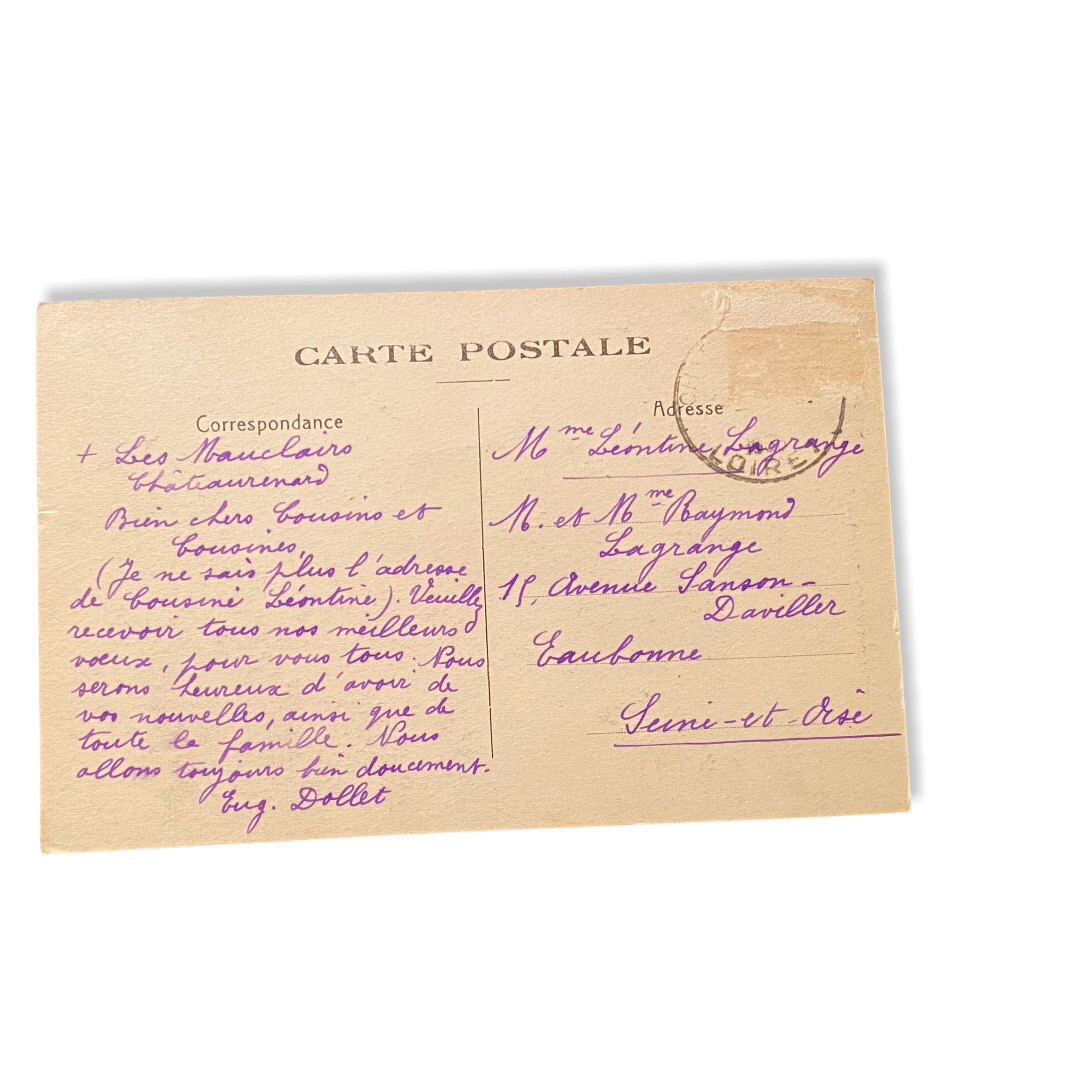 CARTE POSTALE
Correspondance
+ Les Mauclairs
Châteaurenard
Bien chers Cousins et
Cousines,
(Je ne sais plus l'adresse
de Cousine Léontine). Veuillez
recevoir tous nos meilleurs
vœux, pour vous tous. Nous
serons heureux d'avoir de
vos nouvelles, ainsi que de
toute la famille. Nous
allons toujours bien doucement.
Eug. Dollet
Adresse
Mme Léontine Lagrange
M. et Mme Raymond
Lagrange
15, Avenue Sanson-
Daviller
Eaubonne
Seine-et-Oise
LOIRET